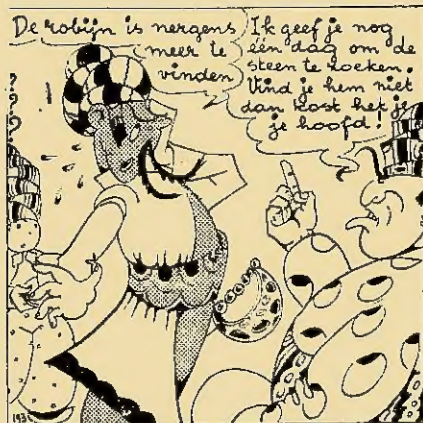 De robijn is nergens
meer te
vinden
Ik geef je nog
één dag om de
steen te zoeken.
Vind je hem niet
dan kost het je
je hoofd!
? ? ?
!